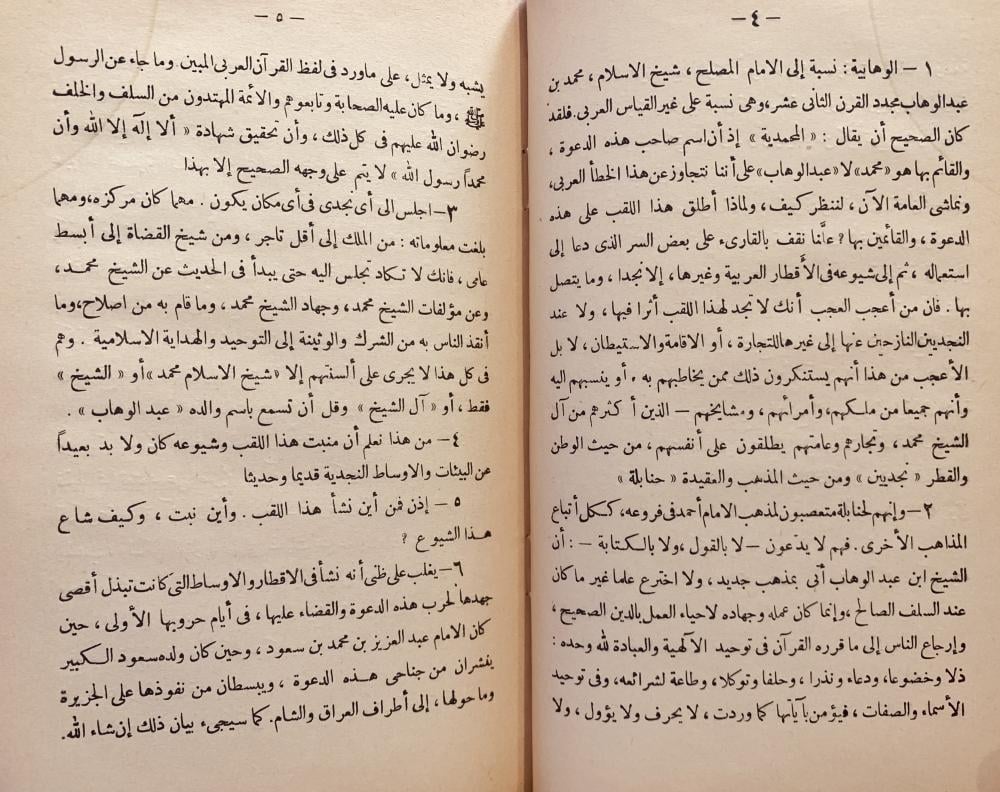 — ٤ —
١ — الوهابية : نسبة إلى الامام المصلح ، شيخ الاسلام ، محمد بن
عبد الوهاب مجدد القرن الثانى عشر ، وهى نسبة على غير القياس العربى . فلقد
كان الصحيح أن يقال : « المحمدية » إذ أن اسم صاحب هذه الدعوة ،
والقائم بها هو « محمد » لا « عبد الوهاب » على أننا نتجاوز عن هذا الخطأ العربى ،
ونماشى العامة الآن ، لننظر كيف ، ولماذا أطلق هذا اللقب على هذه
الدعوة ، والقائمين بها ؟ علَّنا نقف بالقارىء على بعض السر الذى دعا إلى
استعماله ، ثم إلى شيوعه فى الأَقطار العربية وغيرها ، إلا نجدا ، وما يتصل
بها . فان من أعجب العجب أنك لا تجد لهذا اللقب أثرا فيها ، ولا عند
النجديين النازحين عنها إلى غيرها للتجارة ، أو الاقامة والاستيطان ، لا بل
الأعجب من هذا أنهم يستنكرون ذلك ممن يخاطبهم به ، أو ينسبهم اليه
وأنهم جميعا من ملكهم ، وأمرائهم ، ومشايخهم — الذين أكثرهم من آل
الشيخ محمد ، وتجارهم وعامتهم يطلقون على أنفسهم ، من حيث الوطن
والقطر « نجديين » ومن حيث المذهب والعقيدة « حنابلة »
٢ — وإنهم لحنابلة متعصبون لمذهب الامام أحمد فى فروعه ، ككل أتباع
المذاهب الأخرى . فهم لا يدّعون — لا بالقول ، ولا بالكتابة — : أن
الشيخ ابن عبد الوهاب أتى بمذهب جديد ، ولا اخترع علما غير ما كان
عند السلف الصالح ، وإنما كان عمله وجهاده لاحياء العمل بالدين الصحيح ،
وإرجاع الناس إلى ما قرره القرآن فى توحيد الآلهية والعبادة لله وحده :
ذلا وخضوعا ، ودعاء ونذرا ، وحلفا وتوكلا ، وطاعة لشرائعه ، وفى توحيد
الأسماء والصفات ، فيؤمن بآياتها كما وردت ، لا يحرف ولا يؤول ، ولا
— ٥ —
يشبه ولا يمثل ، على ماورد فى لفظ القرآن العربى المبين . وما جاء عن الرسول
ﷺ ، وما كان عليه الصحابة وتابعوهم والأئمة المهتدون من السلف والخلف
رضوان الله عليهم فى كل ذلك ، وأن تحقيق شهادة « ألا إلَه إلا الله وأن
محمداً رسول الله » لا يتم على وجهه الصحيح إلا بهذا
٣ — اجلس الى أى نجدى فى أى مكان يكون . مهما كان مركزه ، ومهما
بلغت معلوماته : من الملك إلى أقل تاجر ، ومن شيخ القضاة إلى أبسط
عامى ، فانك لا تكاد تجلس اليه حتى يبدأ فى الحديث عن الشيخ محمد ،
وعن مؤلفات الشيخ محمد ، وجهاد الشيخ محمد ، وما قام به من اصلاح ، وما
أنقذ الناس به من الشرك والوثنية إلى التوحيد والهداية الاسلامية . وهم
فى كل هذا لا يجرى على ألسنتهم إلا « شيخ الاسلام محمد » أو « الشيخ »
فقط ، أو « آل الشيخ » وقل أن تسمع باسم والده « عبد الوهاب » .
٤ — من هذا نعلم أن منبت هذا اللقب وشيوعه كان ولا بد بعيداً
عن البيئات والاوساط النجدية قديما وحديثا
٥ — إذن فمن أين نشأ هذا اللقب . وأين نبت ، وكيف شاع
هذا الشيوع ؟
٦ — يغلب على ظنى أنه نشأ فى الاقطار والاوساط التى كانت تبذل أقصى
جهدها لحرب هذه الدعوة والقضاء عليها ، فى أيام حروبها الأولى ، حين
كان الامام عبد العزيز بن محمد بن سعود ، وحين كان ولده سعود الكبير
ينشران من جناحى هذه الدعوة ، ويبسطان من نفوذها على الجزيرة
وما حولها ، إلى أطراف العراق والشام . كما سيجىء بيان ذلك إن شاء الله .